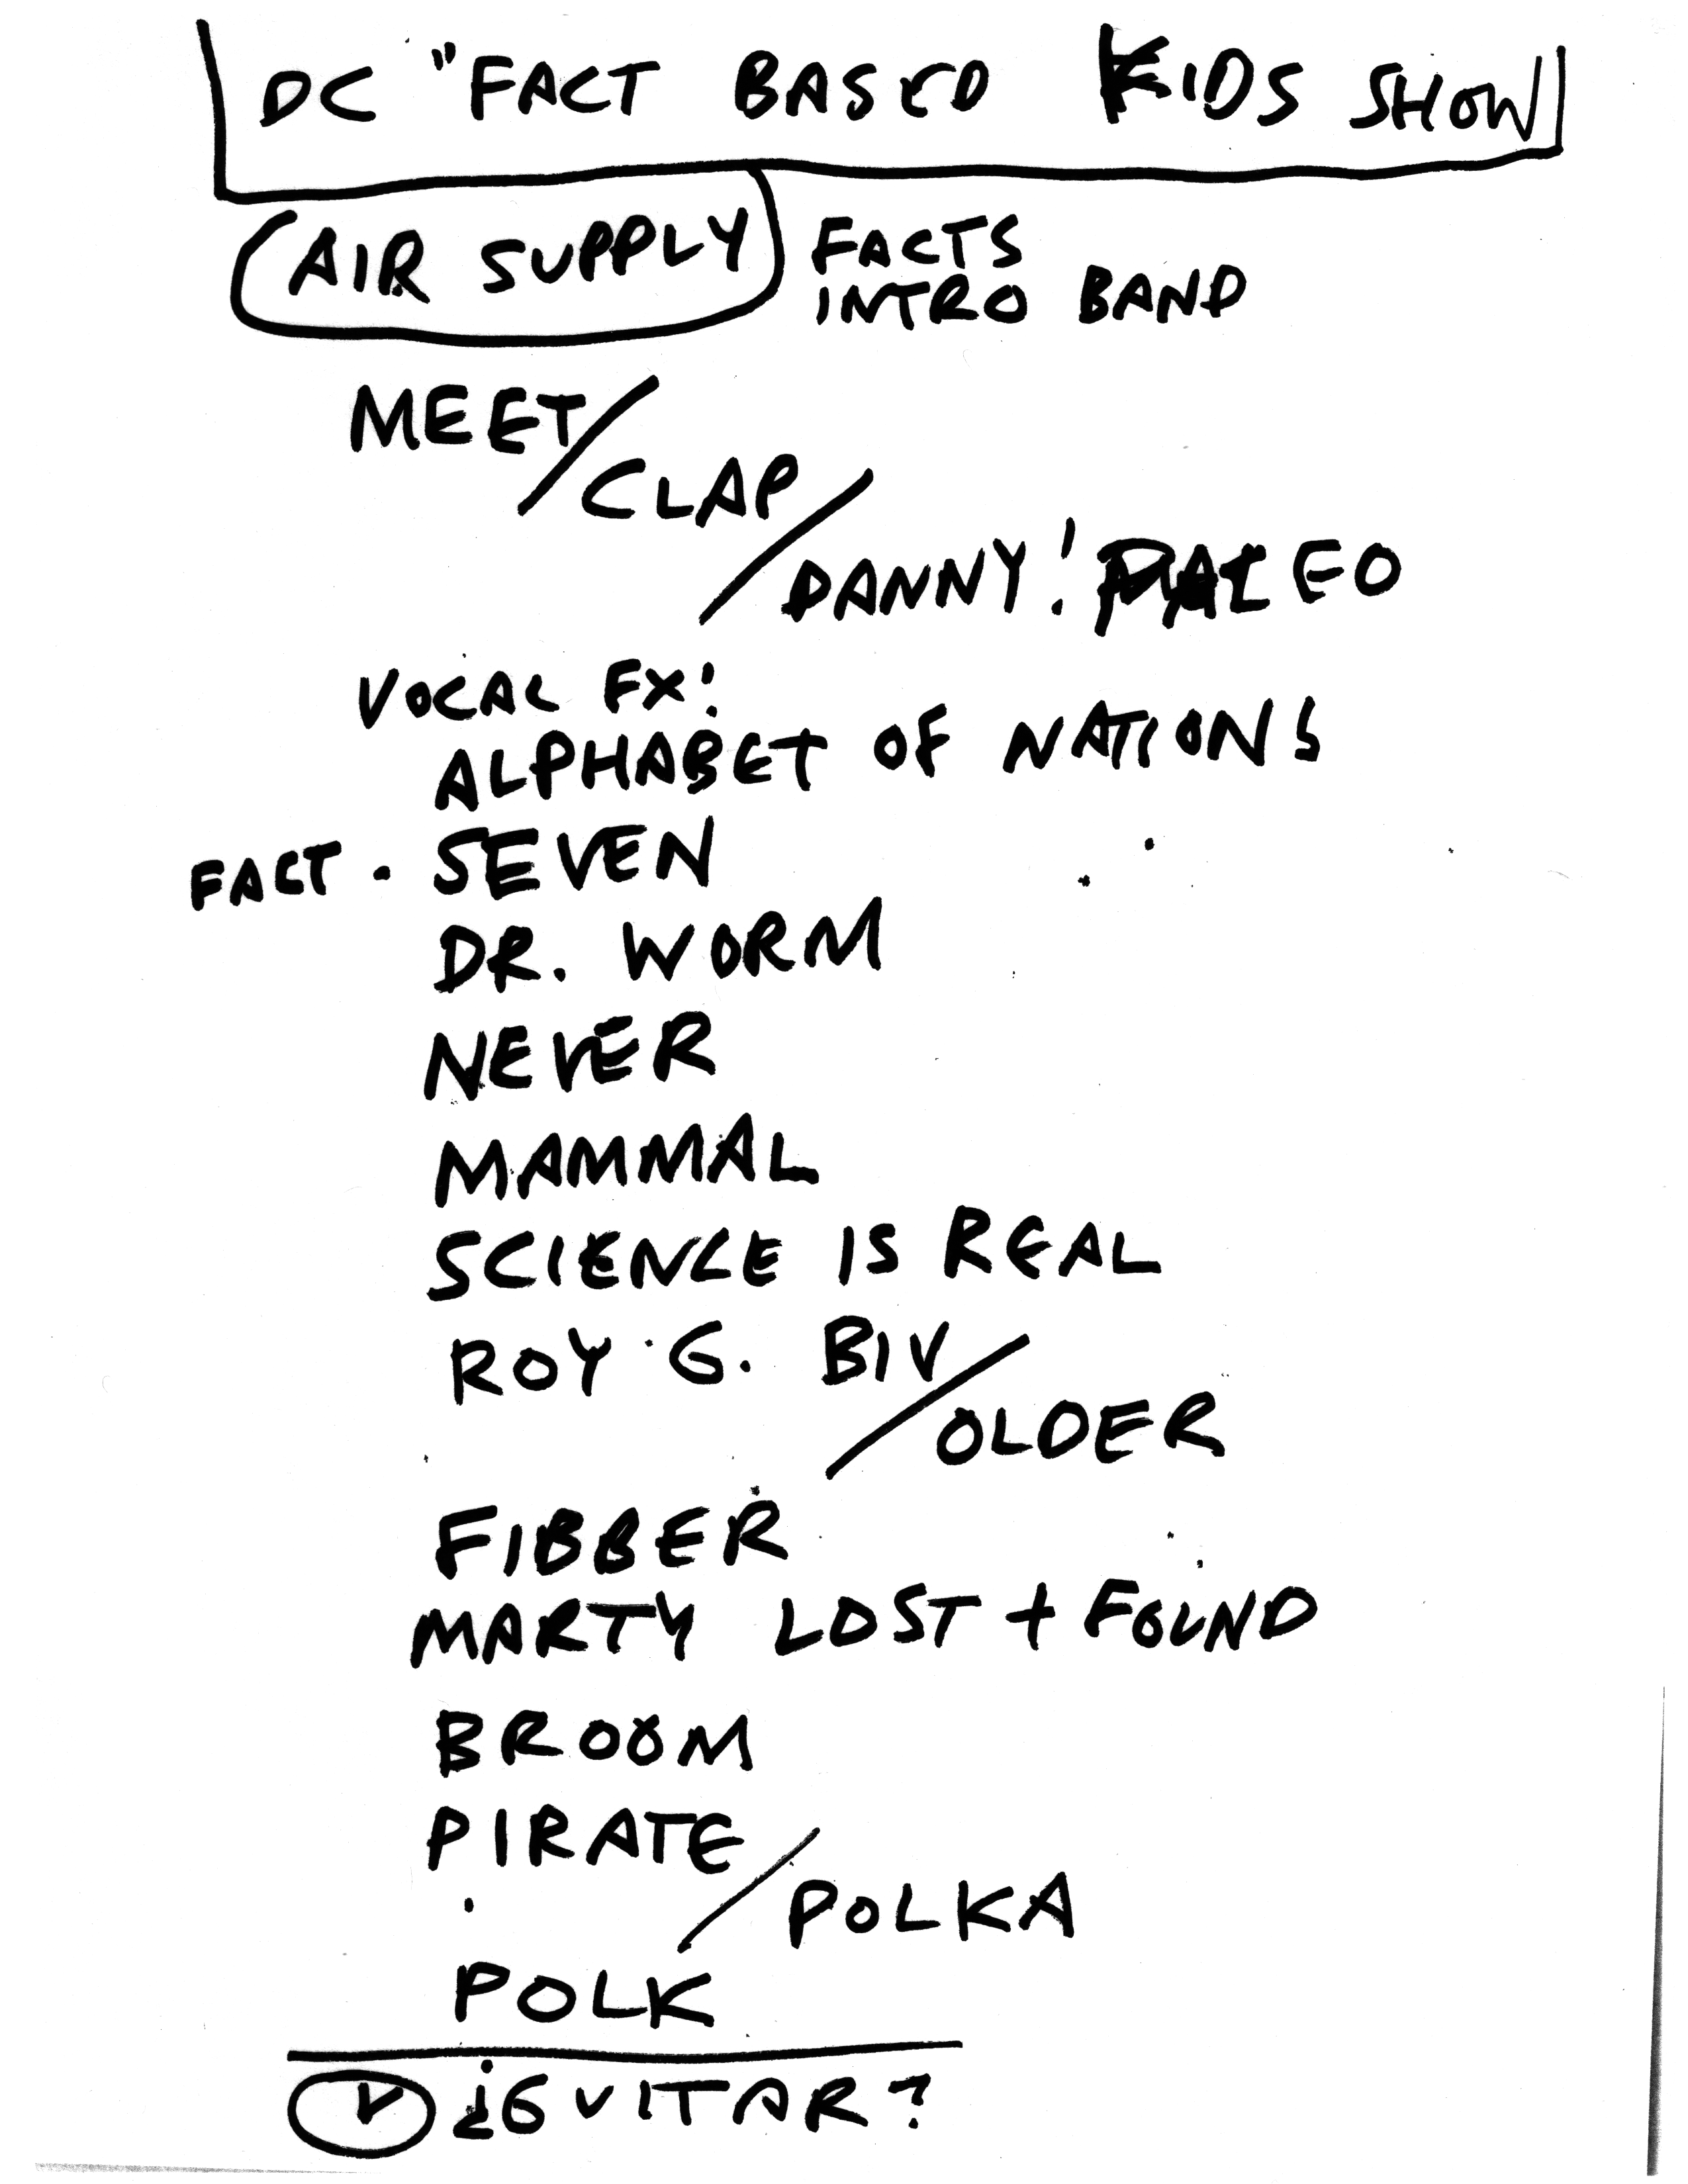 DC "FACT BASED KIDS SHOW
AIR SUPPLY FACTS
INTRO BAND
MEET/
CLAP/
DANNY! PALEO
VOCAL FX:
ALPHABET OF NATIONS
FACT · SEVEN
DR. WORM
NEVER
MAMMAL
SCIENCE IS REAL
ROY G. BIV/
OLDER
FIBBER
MARTY LOST + FOUND
BROOM
PIRATE/
POLKA
POLK
V ¿GUITAR?